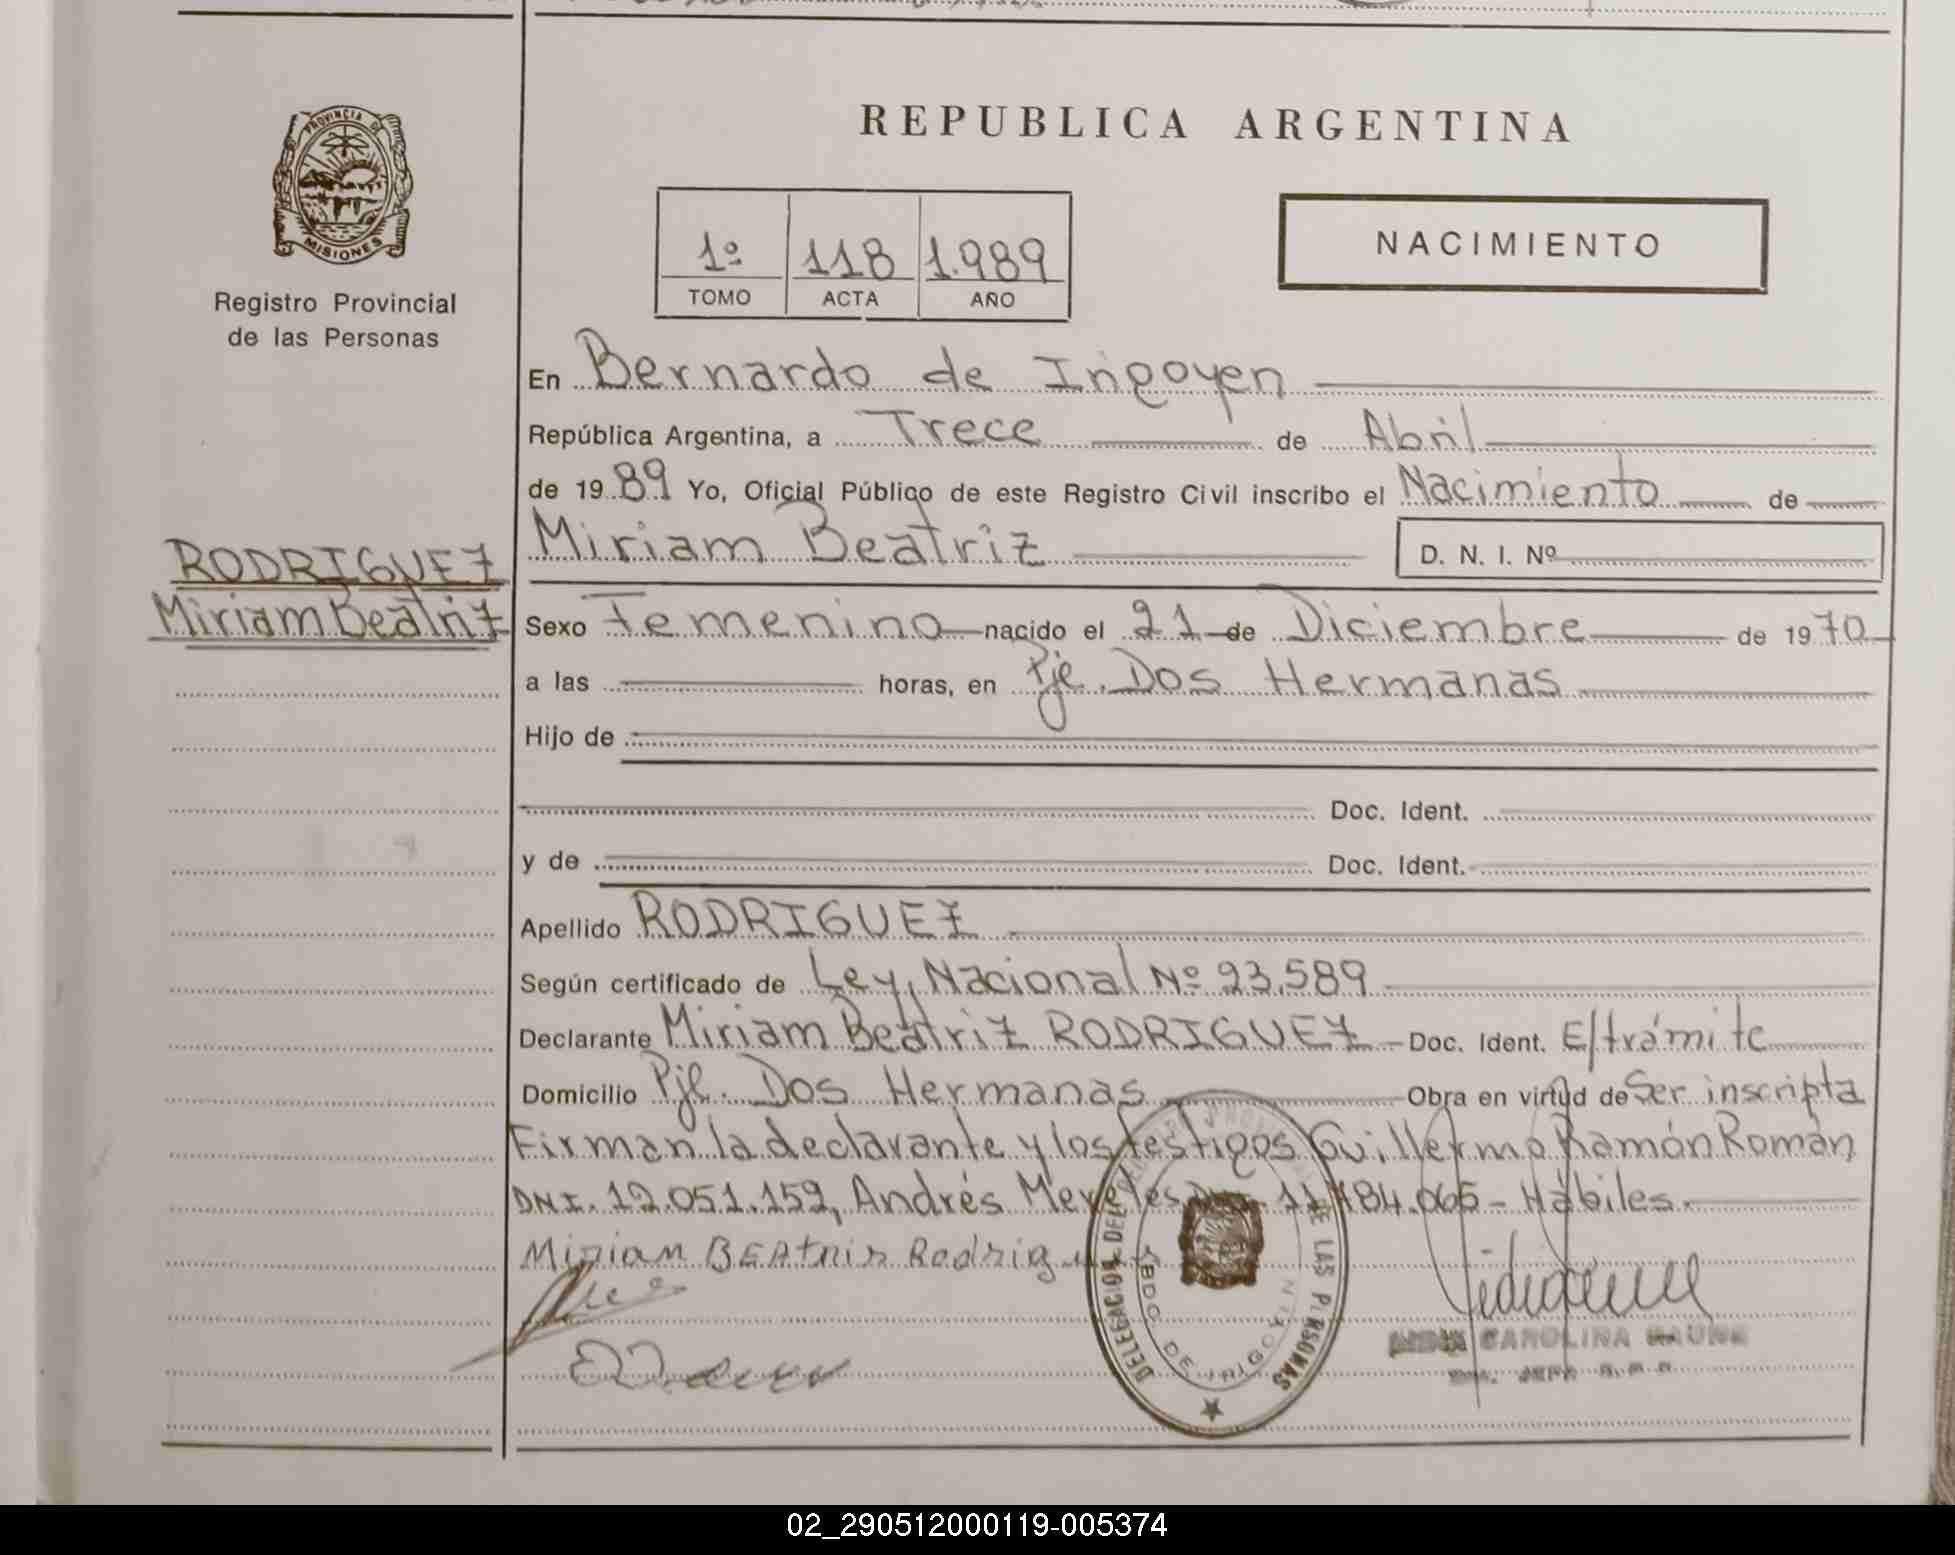 REPUBLICA ARGENTINA
PROVINCIA DE
MISIONES
Registro Provincial
de las Personas
1º 118 1.989
TOMO ACTA AÑO
NACIMIENTO
En Bernardo de Irigoyen
República Argentina, a Trece de Abril
de 1989 Yo, Oficial Público de este Registro Civil inscribo el Nacimiento de
Miriam Beatriz D. N. I. Nº
RODRIGUEZ
Miriam Beatriz
Sexo Femenino nacido el 21 de Diciembre de 1970
a las horas, en Pje. Dos Hermanas
Hijo de
Doc. Ident.
y de Doc. Ident.
Apellido RODRIGUEZ
Según certificado de Ley Nacional Nº 23.589
Declarante Miriam Beatriz RODRIGUEZ Doc. Ident. E/trámite
Domicilio Pje. Dos Hermanas Obra en virtud de Ser inscripta
Firman la declarante y los testigos Guillermo Ramón Román
DNI. 12.051.159, Andrés 11.184.065 - Hábiles.
Miriam BEAtris Rodrig
DELEGACION DEL DE LAS PERSONAS
BDO. DE IRIGOYEN
CAROLINA
JEFA
02_290512000119-005374